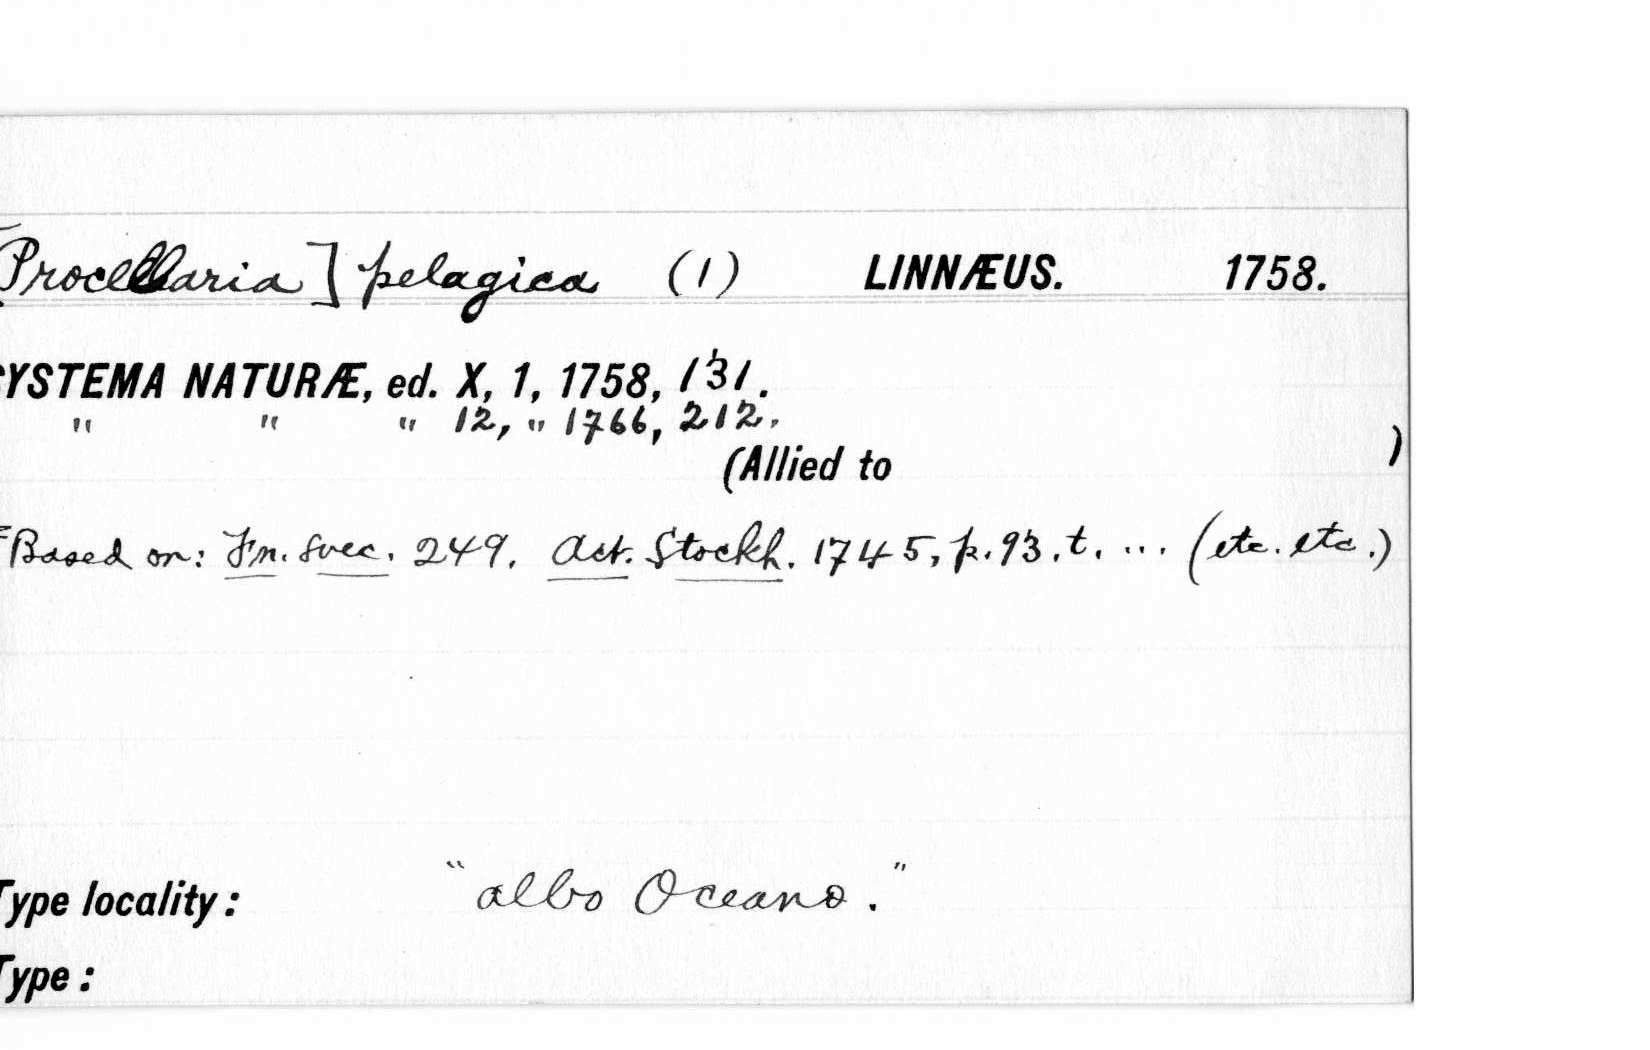 [Procellaria] pelagica (1) LINNÆUS. 1758.
SYSTEMA NATURÆ, ed. X, 1, 1758, 131.
" " " 12, " 1766, 212.
(Allied to )
Based on: Fn. svec. 249. Act. Stockh. 1745, p. 93. t. ... (etc. etc.)
Type locality: "albo Oceano."
Type: